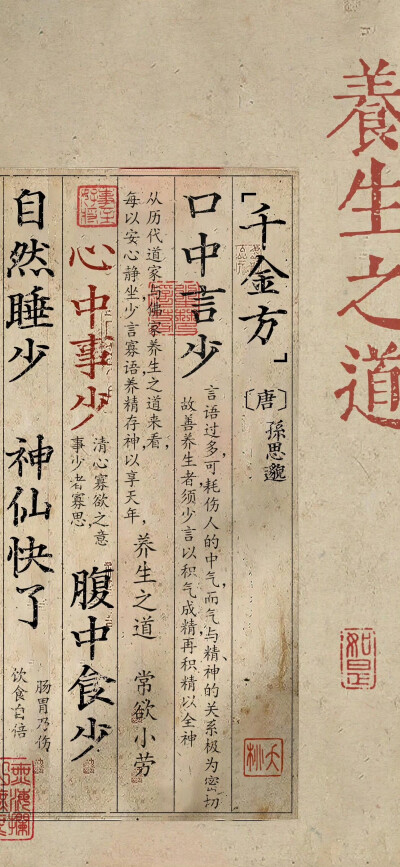 養生之道
如是
「千金方」
〔唐〕
孫思邈
口中言少
言语过多,可耗伤人的中气,而气与精神的关系极为密切
故善养生者,须少言以积气成精再积精以全神
从历代道家与儒家养生之道来看,
每以安心静坐少言寡语养精存神,以享天年,
养生之道 常欲小劳
心中事少
清心寡欲之意
事少者寡思
腹中食少
自然睡少
神仙快了
肠胃乃伤
饮食自倍